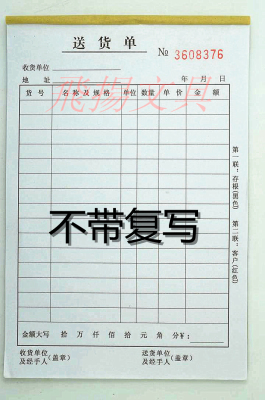 送货单
№ 3608376
收货单位
地 址 年 月 日
飛揚文具
货号 名称及规格 单位 数量 单价 金额
不带复写
金额大写 拾 万 仟 佰 拾 元 角 分 ¥:
收货单位及经手人(盖章) 送货单位及经手人(盖章)
第一联:存根(黑色) 第二联:客户(红色)